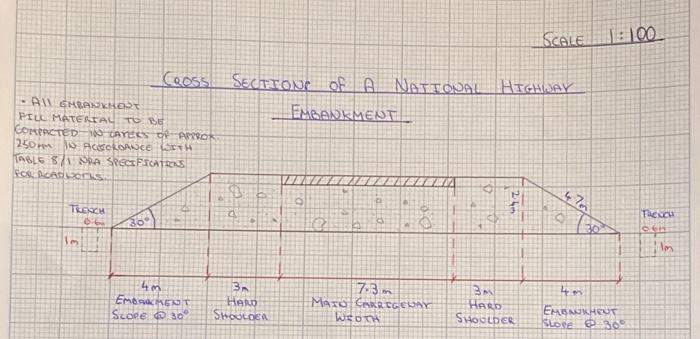 SCALE 1:100
CROSS SECTIONS OF A NATIONAL HIGHWAY
EMBANKMENT
• All EMBANKMENT
FILL MATERIAL TO BE
COMPACTED IN LAYERS OF APPROX
250mm IN ACCORDANCE WITH
TABLE 8/1 NRA SPECIFICATIONS
FOR ROADWORKS.
TRENCH
0.6m
1m
30°
4.7m
30°
TRENCH
0.6m
1m
4m
EMBANKMENT
SLOPE @ 30°
3m
HARD
SHOULDER
7.3m
MAIN CARRIGEWAY
WIDTH
3m
HARD
SHOULDER
4m
EMBANKMENT
SLOPE @ 30°